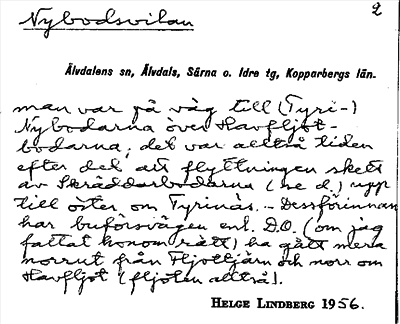 Nybodsvilan
2
Älvdalens sn, Älvdals, Särna o. Idre tg, Kopparbergs län.
man var på väg till (Tyri-)
Nybodarna över Havfljot-
bodarna; det var alltså tiden
efter det att flyttningen skett
av Skräddarbodarna (se d.) upp
till öster om Tyrinäs. – Dessförinnan
har buförsvägen enl. D.O. (om jag
fattat honom rätt) ha gått mera
norrut från Fljottjärn och norr om
Havfljot (fljoten alltså).
HELGE LINDBERG 1956.